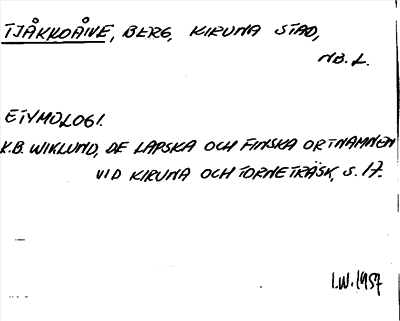 TJÅKKOÅIVE, BERG, KIRUNA STAD,
NB. L.
ETYMOLOGI.
K.B. WIKLUND, DE LAPSKA OCH FINSKA ORTNAMNEN
VID KIRUNA OCH TORNETRÄSK, S. 17.
I.W. 1957